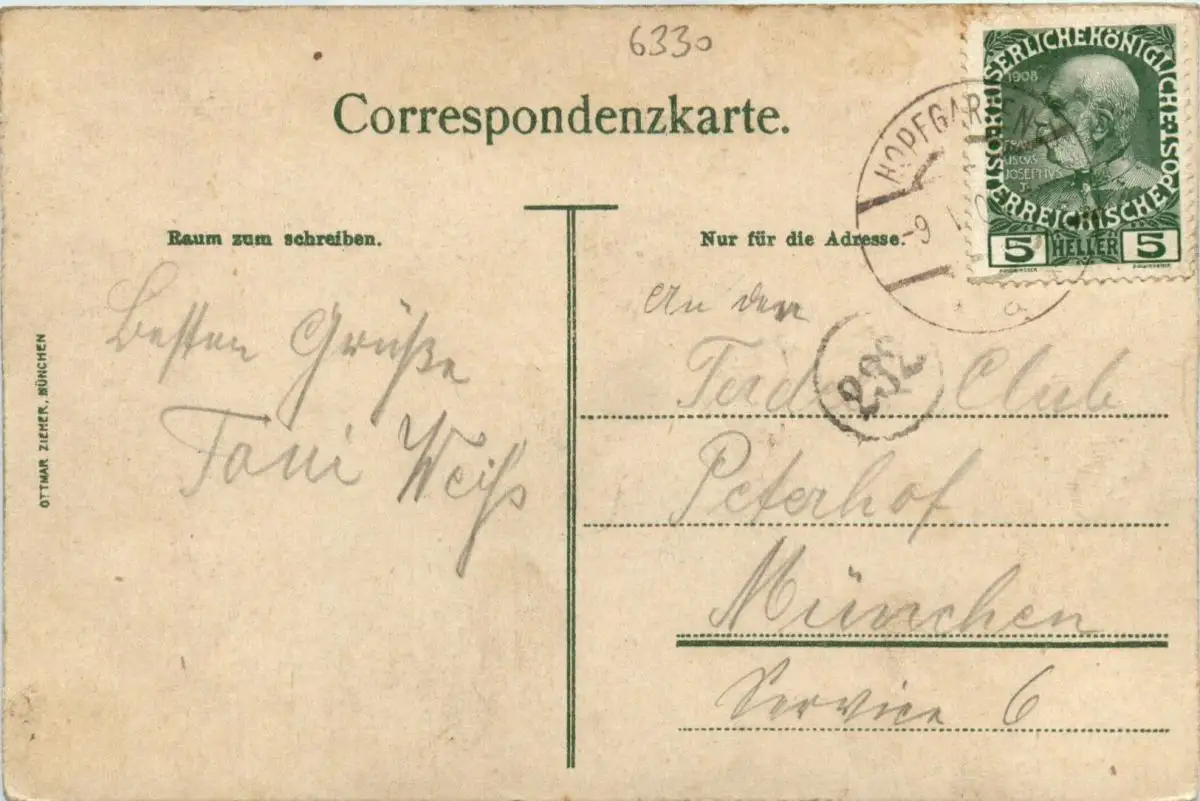 6330
Correspondenzkarte.
KAISERLICHE KÖNIGLICHE ÖSTERREICHISCHE POST
1908
FRANCISCUS JOSEPHVS I.
5 HELLER 5
HOPFGARTEN
-9
a
Raum zum schreiben.
Besten Grüße
Toni Weiß
OTTMAR ZIEHER, MÜNCHEN
Nur für die Adresse.
An den
Club
232
Peterhof
München
Service 6